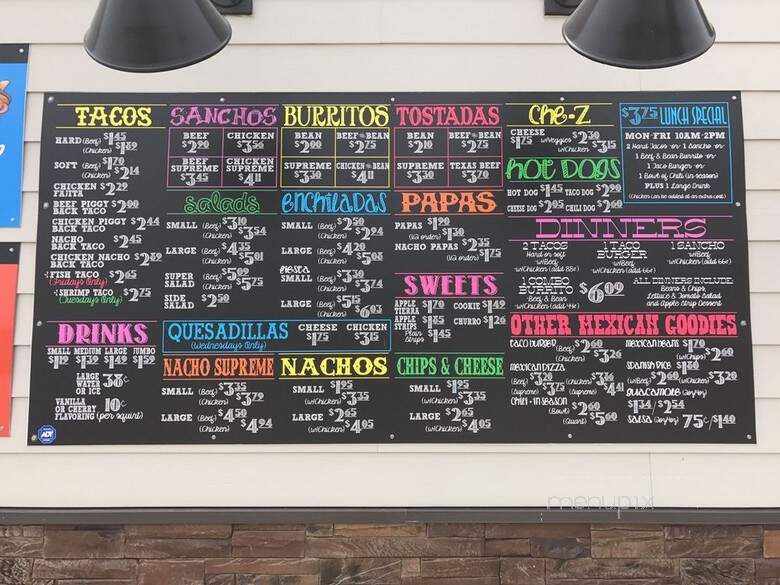 TACOS
HARD (Beef) $1.45
(Chicken) $1.89
SOFT (Beef) $1.70
(Chicken) $2.14
CHICKEN FAJITA $2.29
BEEF PIGGY BACK TACO $2.00
CHICKEN PIGGY BACK TACO $2.44
NACHO BACK TACO $2.45
CHICKEN NACHO BACK TACO $2.89
FISH TACO $2.65
(Fridays Only)
SHRIMP TACO $2.75
(Tuesdays Only)
SANCHOS
BEEF $2.90
CHICKEN $3.56
BEEF SUPREME $3.45
CHICKEN SUPREME $4.11
BURRITOS
BEAN $2.00
BEEF & BEAN $2.75
SUPREME $3.30
CHICKEN & BEAN $4.11
TOSTADAS
BEAN $2.10
BEEF & BEAN $2.75
SUPREME $3.30
TEXAS BEEF $3.70
Che-Z
CHEESE $1.75
w/Veggies $2.30
w/Chicken $3.15
Hot Dogs
HOT DOG $1.45
TACO DOG $2.90
CHEESE DOG $2.05
CHILI DOG $2.60
$3.75 LUNCH SPECIAL
MON-FRI 10AM-2PM
2 Hard Tacos or 1 Sancho or
1 Beef & Bean Burrito or
1 Taco Burger or
1 Bowl of Chili (in season)
PLUS 1 Large Drink
(Chicken can be added at an extra cost)
Salads
SMALL (Beef) $3.10
(Chicken) $3.54
LARGE (Beef) $4.35
(Chicken) $5.01
SUPER SALAD (Beef) $5.09
(Chicken) $5.75
SIDE SALAD $2.50
Enchiladas
SMALL (Beef) $2.50
(Chicken) $2.94
LARGE (Beef) $4.20
(Chicken) $5.08
Fiesta
SMALL (Beef) $3.30
(Chicken) $3.74
LARGE (Beef) $5.15
(Chicken) $6.03
PAPAS
PAPAS $1.90
(1/2 order) $1.30
NACHO PAPAS $2.35
(1/2 order) $1.75
SWEETS
APPLE TIERRA $1.70
COOKIE $1.49
APPLE STRIPS $1.85
CHURRO $1.26
Plain Strips $1.45
DINNERS
2 TACOS
Hard or Soft
w/Beef
w/Chicken (add 88¢)
1 TACO BURGER
w/Beef
w/Chicken (add 66¢)
1 SANCHO
w/Beef
w/Chicken (add 66¢)
1 COMBO BURRITO
Beef & Bean
w/Chicken (add 44¢)
$6.09
ALL DINNERS INCLUDE
Beans & Chips
Lettuce & Tomato Salad
and Apple Strip Dessert
DRINKS
SMALL $1.19
MEDIUM $1.39
LARGE $1.49
JUMBO $1.59
LARGE WATER OR ICE 38¢
VANILLA OR CHERRY FLAVORING 10¢
(per squirt)
QUESADILLAS
(Wednesdays Only)
CHEESE $1.75
CHICKEN $3.15
NACHO SUPREME
SMALL (Beef) $3.35
(Chicken) $3.79
LARGE (Beef) $4.50
(Chicken) $4.94
NACHOS
SMALL $1.95
(w/Chicken) $4.35
LARGE $2.65
(w/Chicken) $4.05
CHIPS & CHEESE
SMALL $1.95
(w/Chicken) $3.35
LARGE $2.65
(w/Chicken) $4.05
OTHER MEXICAN GOODIES
Taco Burger (Beef) $2.60
(Chicken) $3.26
Mexican Pizza
(Beef) $3.20
(Chicken) $3.86
(Supreme) $3.75
(Supreme) $4.41
Chili - In Season
(Bowl) $2.60
(Quart) $5.60
Mexican Beans $1.70
(w/Chips) $2.60
Spanish Rice $1.80
(w/Beef) $2.60
(w/Chicken) $3.20
Guacamole (2oz/4oz)
$1.34/$2.54
Salsa (2oz/4oz) 75¢/$1.40
ADT
menupix